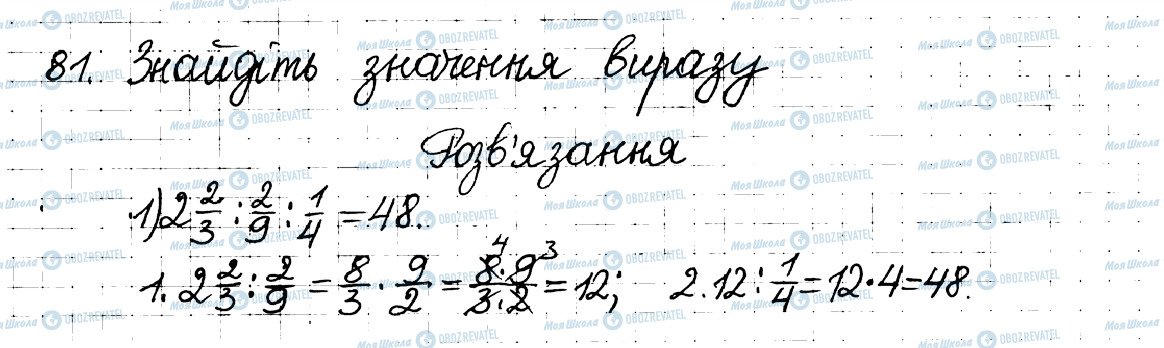 81. Знайдіть значення виразу
Розв'язання
1) 2 2/3 : 2/9 : 1/4 = 48.
1. 2 2/3 : 2/9 = 8/3 · 9/2 = 8·9/3·2 = 12; 2. 12 : 1/4 = 12·4 = 48.